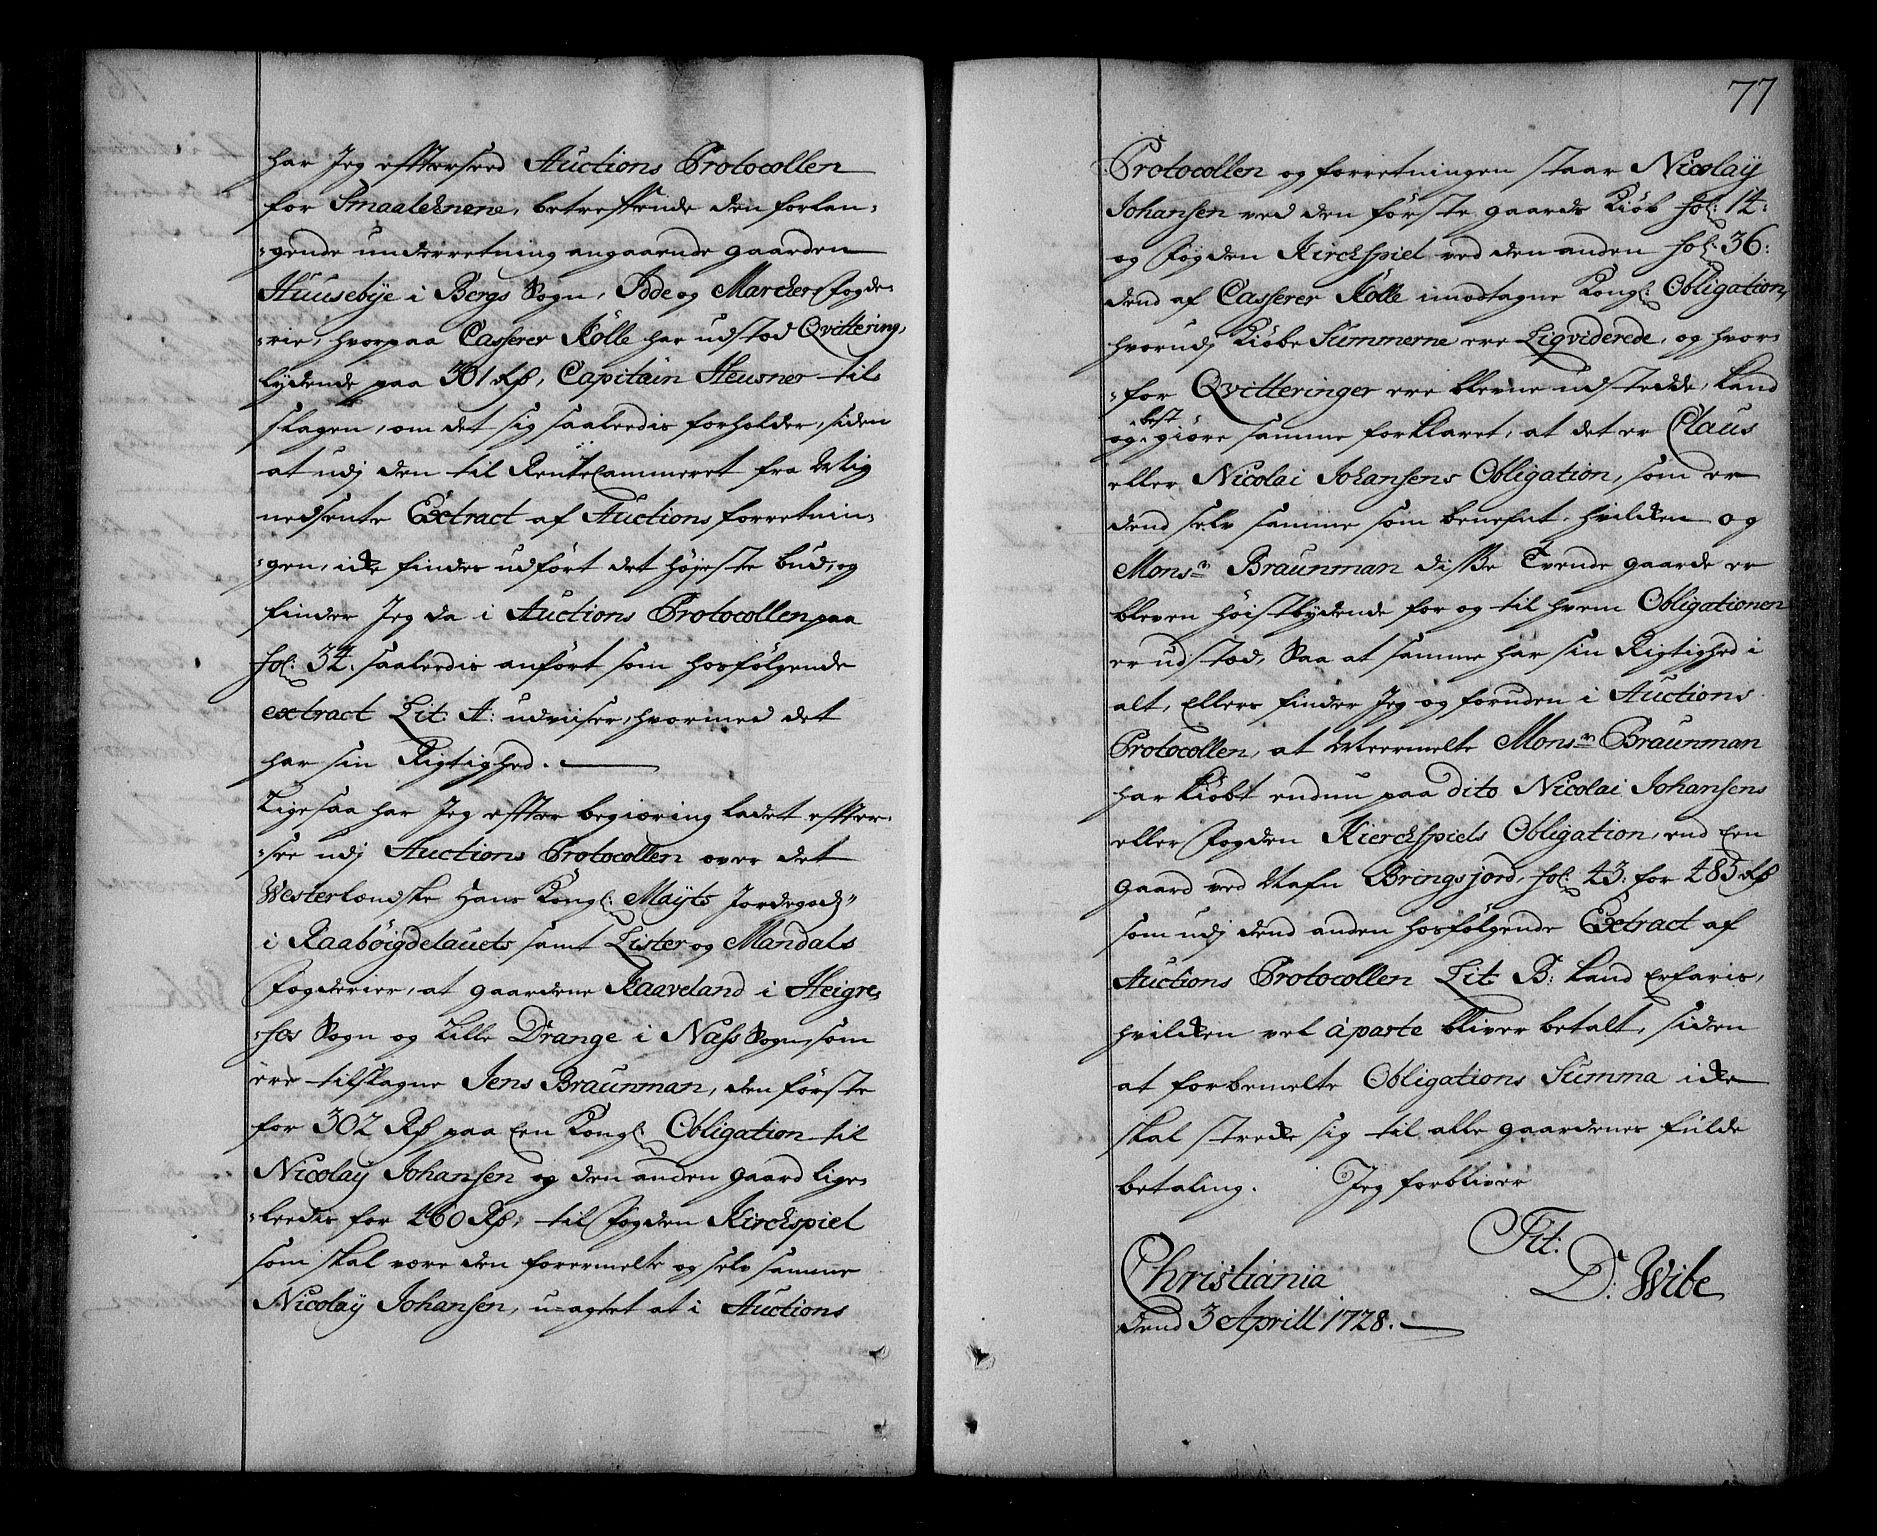 har Jeg effterseed Auctions Protocollen
for Smaalehnene, betreffende den forlan-
-gende underretning angaaende gaarden
Huusebye i Bergs Sogn, Idde og Marcker Fogde-
-rie, hvorpaa Casserer Kølle har udstæd Qvittering,
lydende paa 301 Rd, Capitain Heusner til-
slagen, om det sig saaleedis forholder, siden
at udj den til RenteCammeret fra Mig
nedsente Extract af Auctions forretnin-
-gen, icke findes udført det høyeste bud, og
finder Jeg da i Auctions Protocollen paa
fol: 34. saaleedis anført som hosfølgende
extract Lit: A: udviser, hvormed det
har sin Rigtighed.
Ligesaa har Jeg effter begiæring ladet effter-
-see udj Auctions Protocollen over det
Westerlendske Hans Kongl: Mayts Jordegods
i Raabøigdelauets samt Lister og Mandals
Fogderier, at gaardene Raaveland i Heigre-
-fos Sogn og Lille Drange i Næss Sogn, som
ere tilslagne Jens Braunman, den første
for 302 Rd paa Een Kongl: Obligation til
Nicolay Johansen og den anden gaard lige-
-leedis for 460 Rd, til Fogden Kirchspiel
som skal være den forermelte og selv samme
Nicolay Johansen, u-agtet at i Auctions
77
Protocollen og forretningen staar Nicolay
Johansen ved den første gaards Kiøb fol: 14:
og Fogden Kirchspiel ved den anden fol: 36:
dend af Casserer Kølle imodtagne Kongl: Obligation,
hvorudj Kiøbe Summerne ere Liqviderede, og hvor-
-for Qvitteringer ere blevne udstedde, kand
og best giøre samme forklaret, at det er Claus
eller Nicolai Johansens Obligation, som er
dend selv samme som benefnt, hvilken og
Monsr Braunman disse Tvende gaarde er
bleven høistbydende for og til hvem Obligationen
er udstæd, saa at samme har sin Rigtighed i
alt, Ellers finder Jeg og foruden i Auctions
Protocollen, at Meermelte Monsr Braunman
har kiøbt endnu paa dito Nicolai Johansens
eller Fogden Kierchspiels Obligation, end Een
gaard ved Nafn Bringsjord, fol: 43: for 485 Rd
som udj dend anden hosfølgende Extract af
Auctions Protocollen Lit: B: kand Erfaris,
hvilken vel àparte bliver betalt, siden
at forbemelte Obligations Summa icke
skal strecke sig til alle gaardenes fulde
betaling. Jeg forbliver
Tit:
D: Wibe
Christiania
dend 3 Aprill 1728.